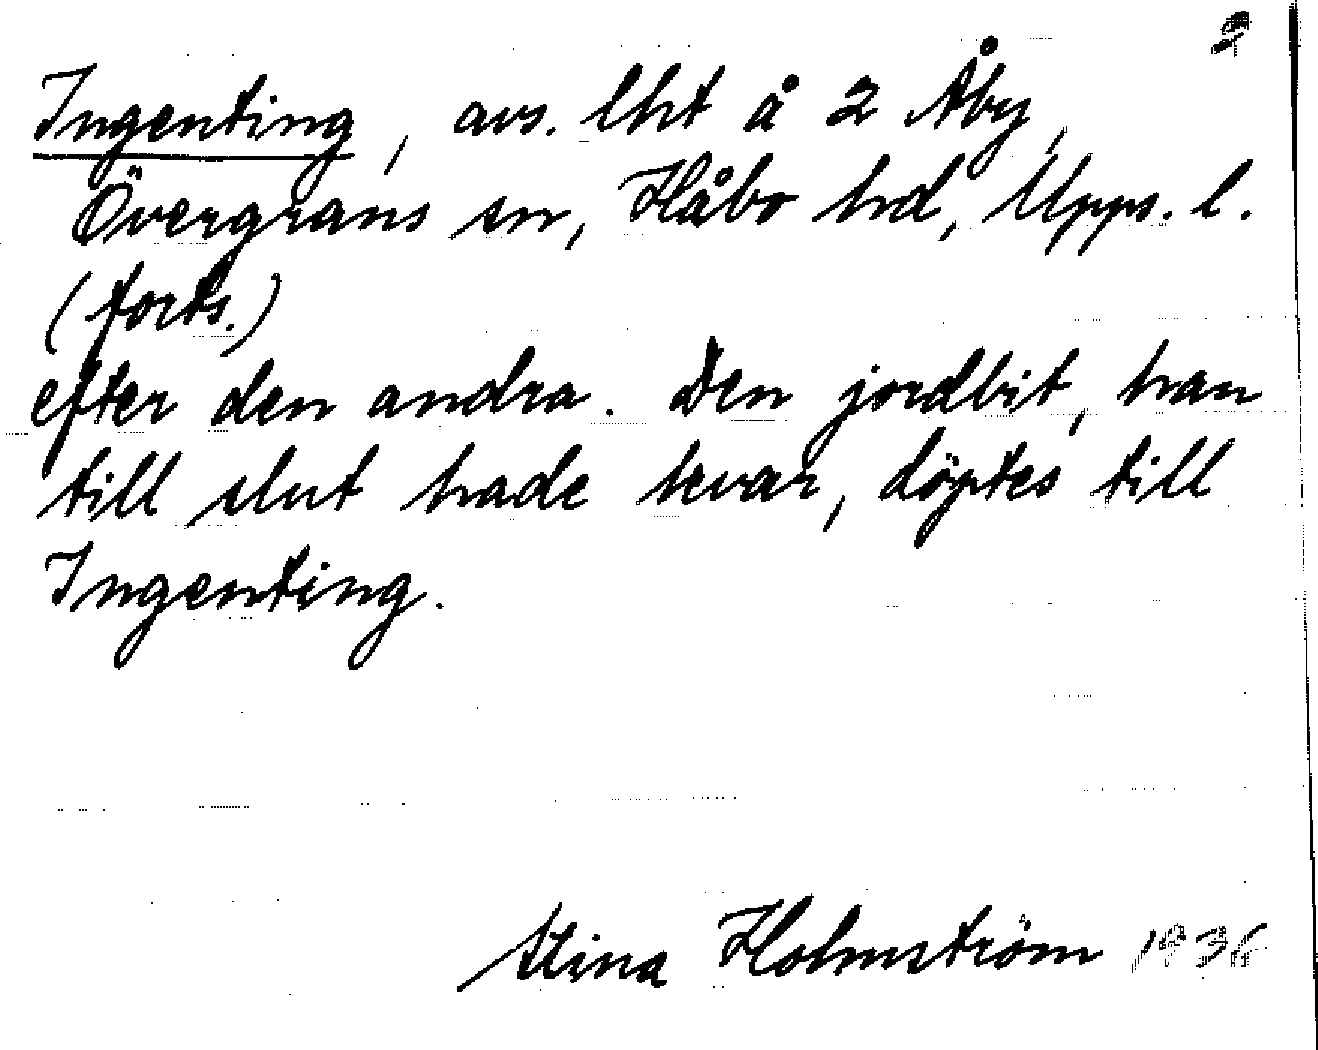 Ingenting, avs. lht å 2 Åby,
Övergrans sn, Håbo hd, Upps. l.
(forts.)
efter den andra. Den jordbit, han
till slut hade kvar, döptes till
Ingenting.
Stina Holmström 1936